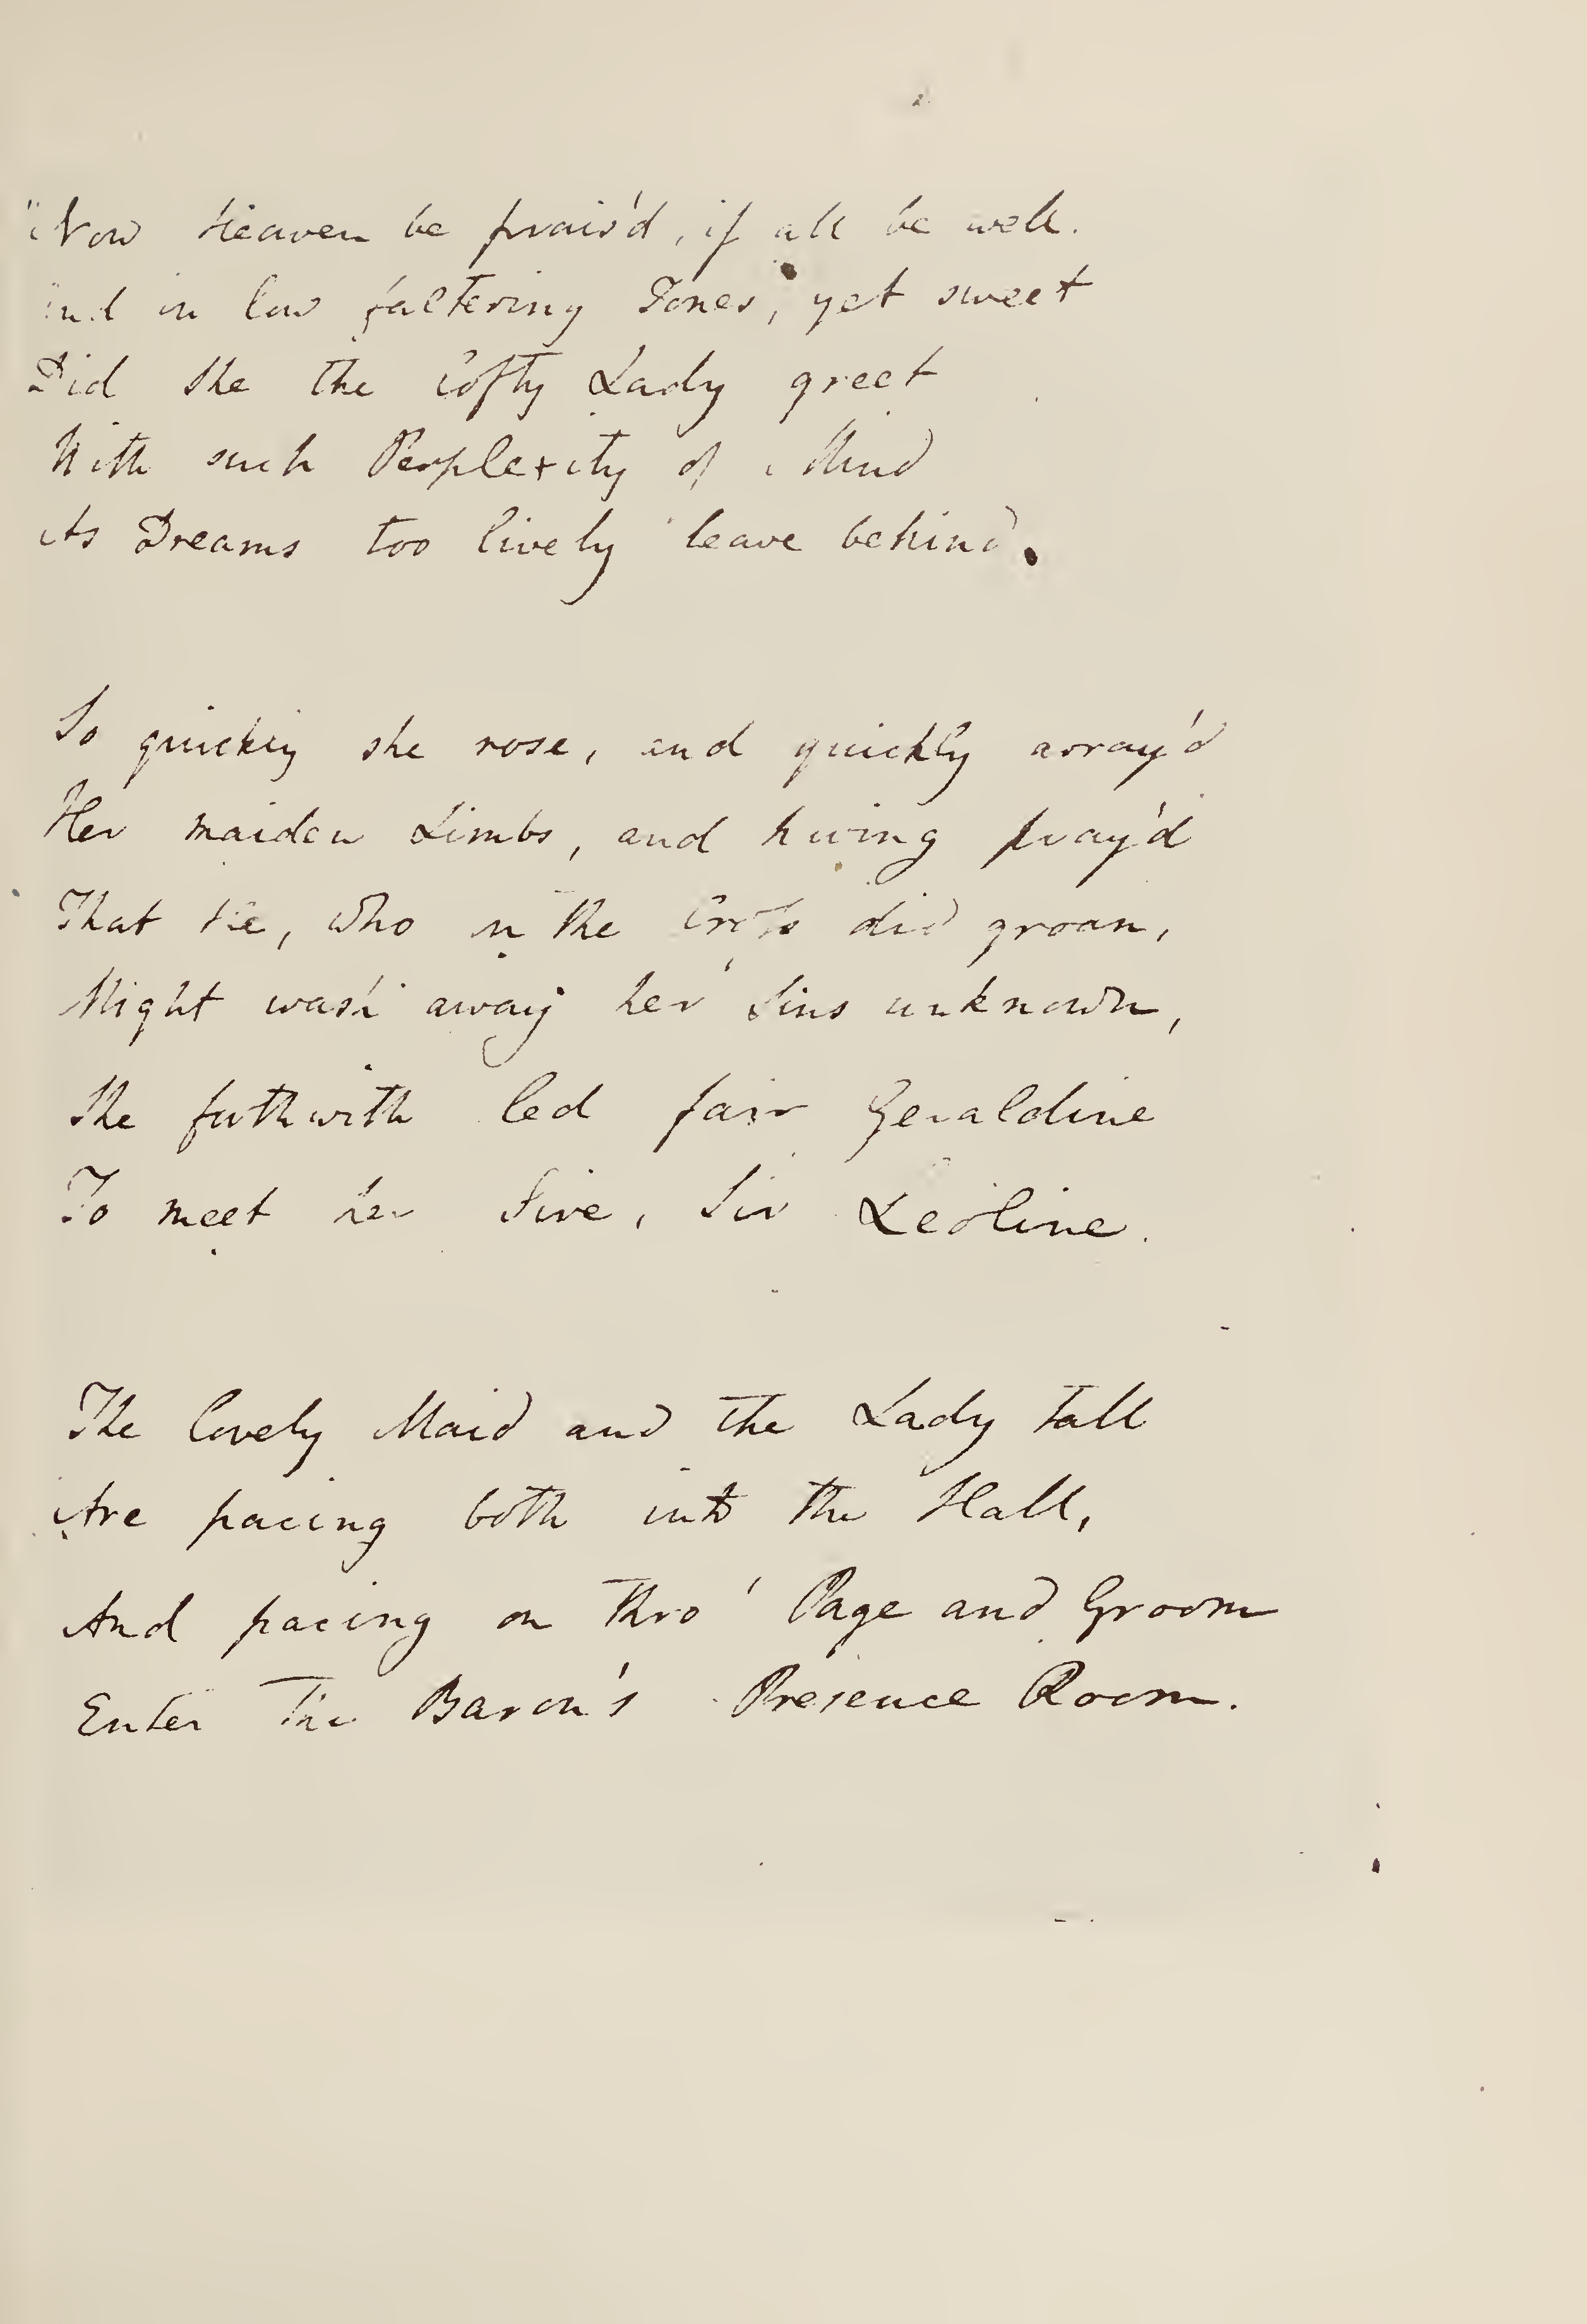 "Now Heaven be prais'd, if all be well.
And in low faltering Tones, yet sweet
Did she the lofty Lady greet
With such Perplexity of Mind
As Dreams too lively leave behind.
So quickly she rose, and quickly array'd
Her maiden Limbs, and having pray'd
That He, who on the Cross did groan,
Might wash away her Sins unknown,
She forthwith led fair Geraldine
To meet her Sire, Sir Leoline.
The lovely Maid and the Lady tall
Are pacing both into the Hall,
And pacing on thro' Page and Groom
Enter the Baron's Presence Room.